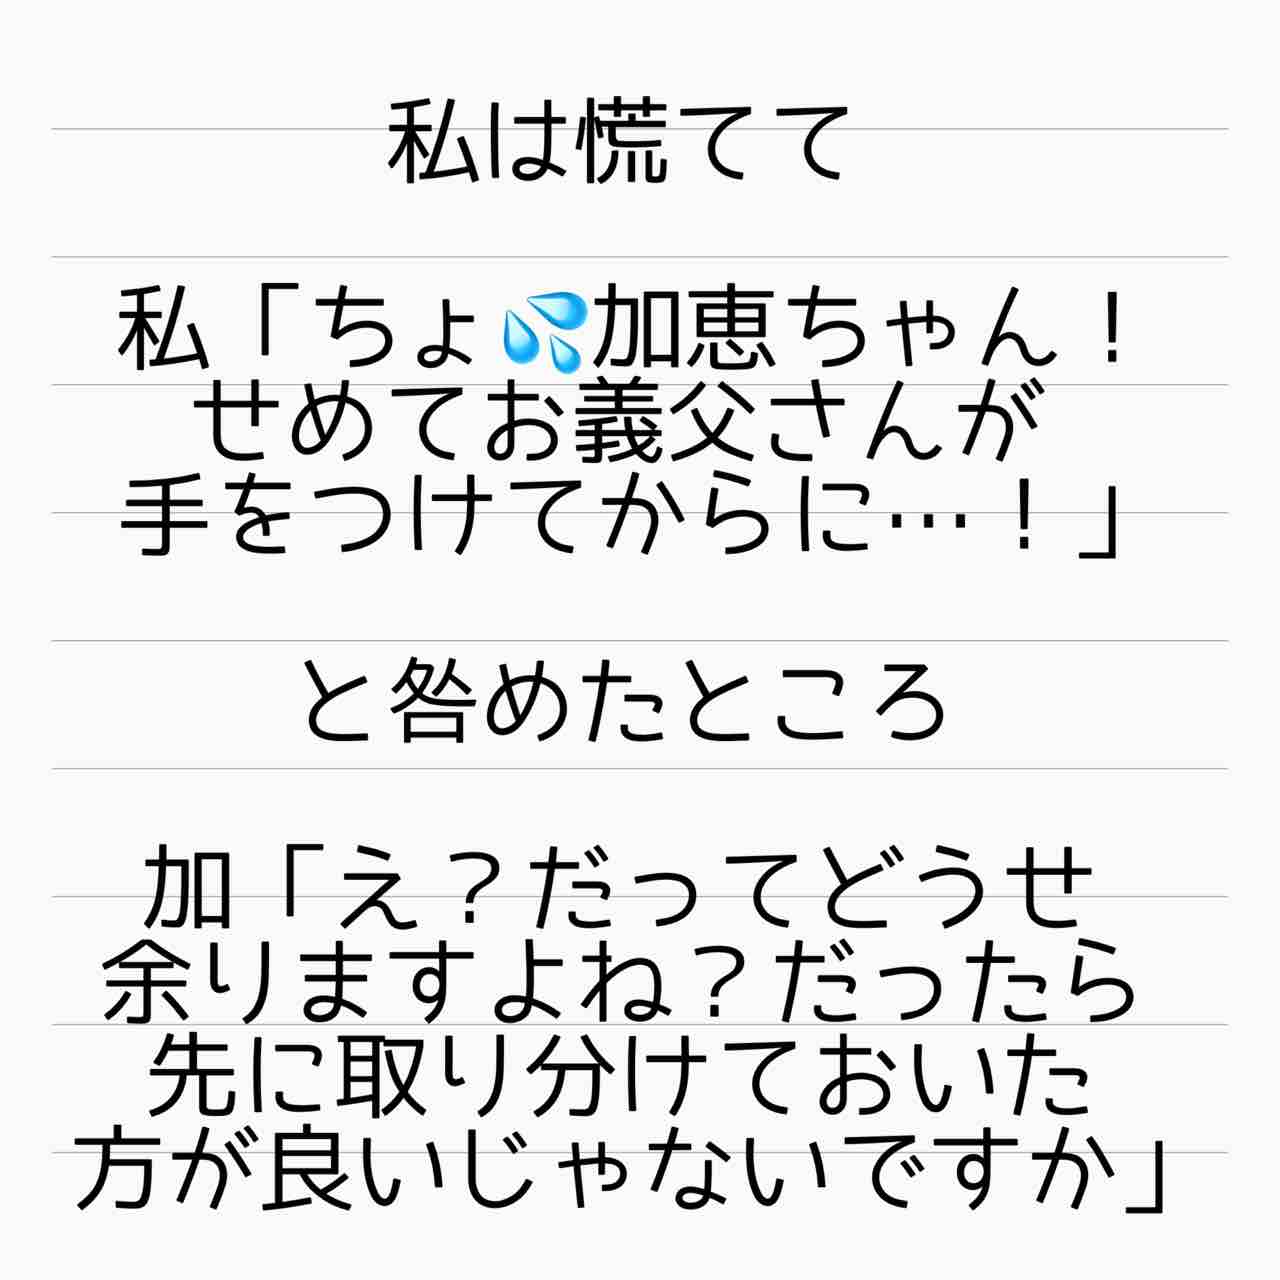 私は慌てて
私「ちょ💦加恵ちゃん！
せめてお義父さんが
手をつけてからに…！」
と咎めたところ
加「え？だってどうせ
余りますよね？だったら
先に取り分けておいた
方が良いじゃないですか」